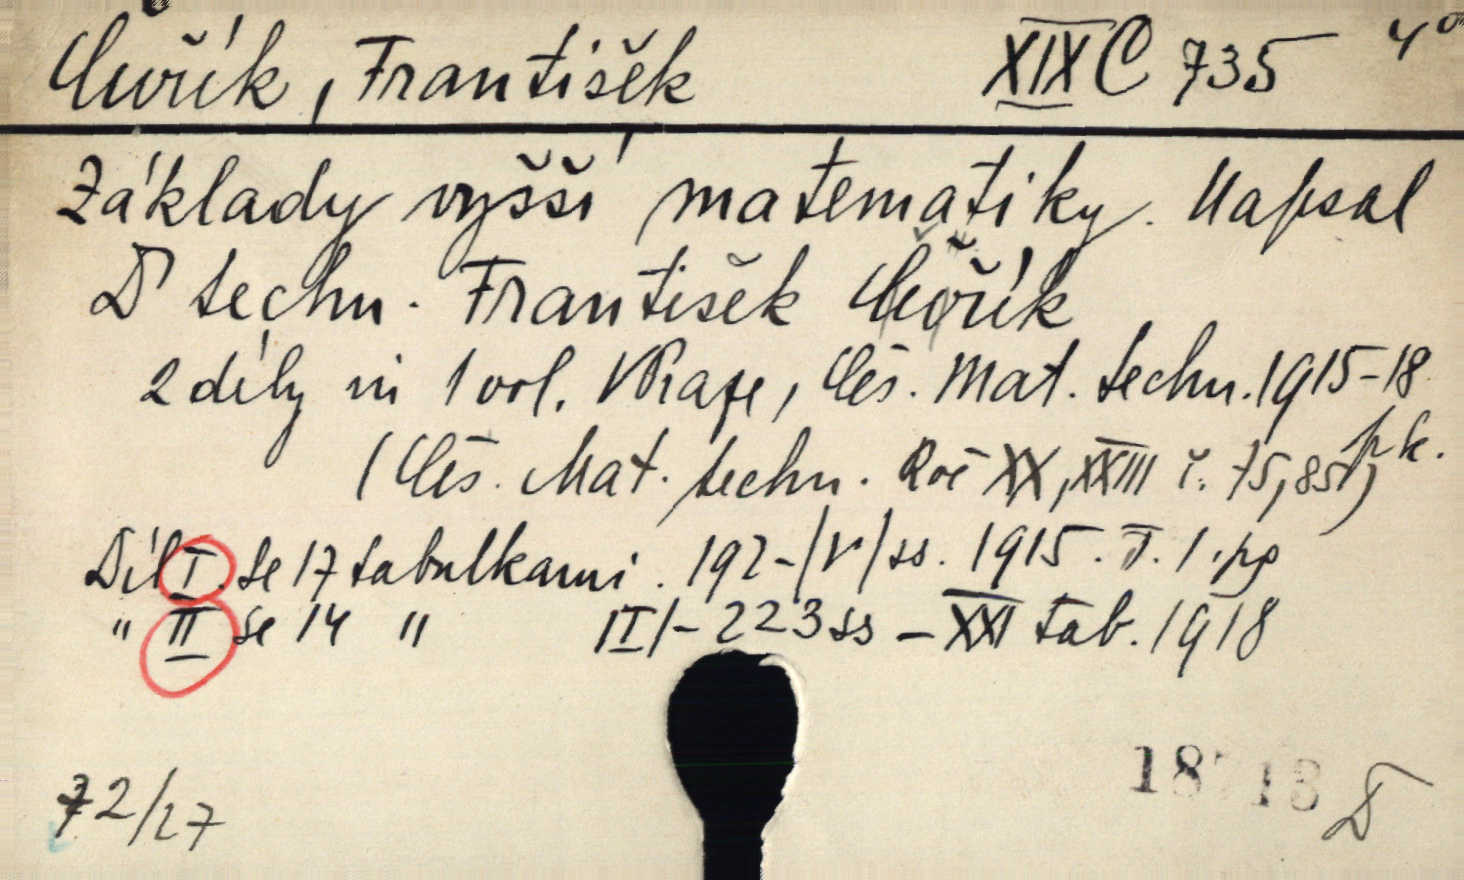 Čuřík, František XIX C 735 4°
Základy vyšší matematiky. Napsal
Dr techn. František Čuřík
2 díly in 1 vol. V Praze, Čes. Mat. techn. 1915-18
(Čes. Mat. techn. Roč XX, XXIII č. 75, 85) pk.
Díl I. se 17 tabulkami. 192-/V/ss. 1915. T. 1.
" II se 14 " II/-223 ss - XXI tab. 1918
72/27